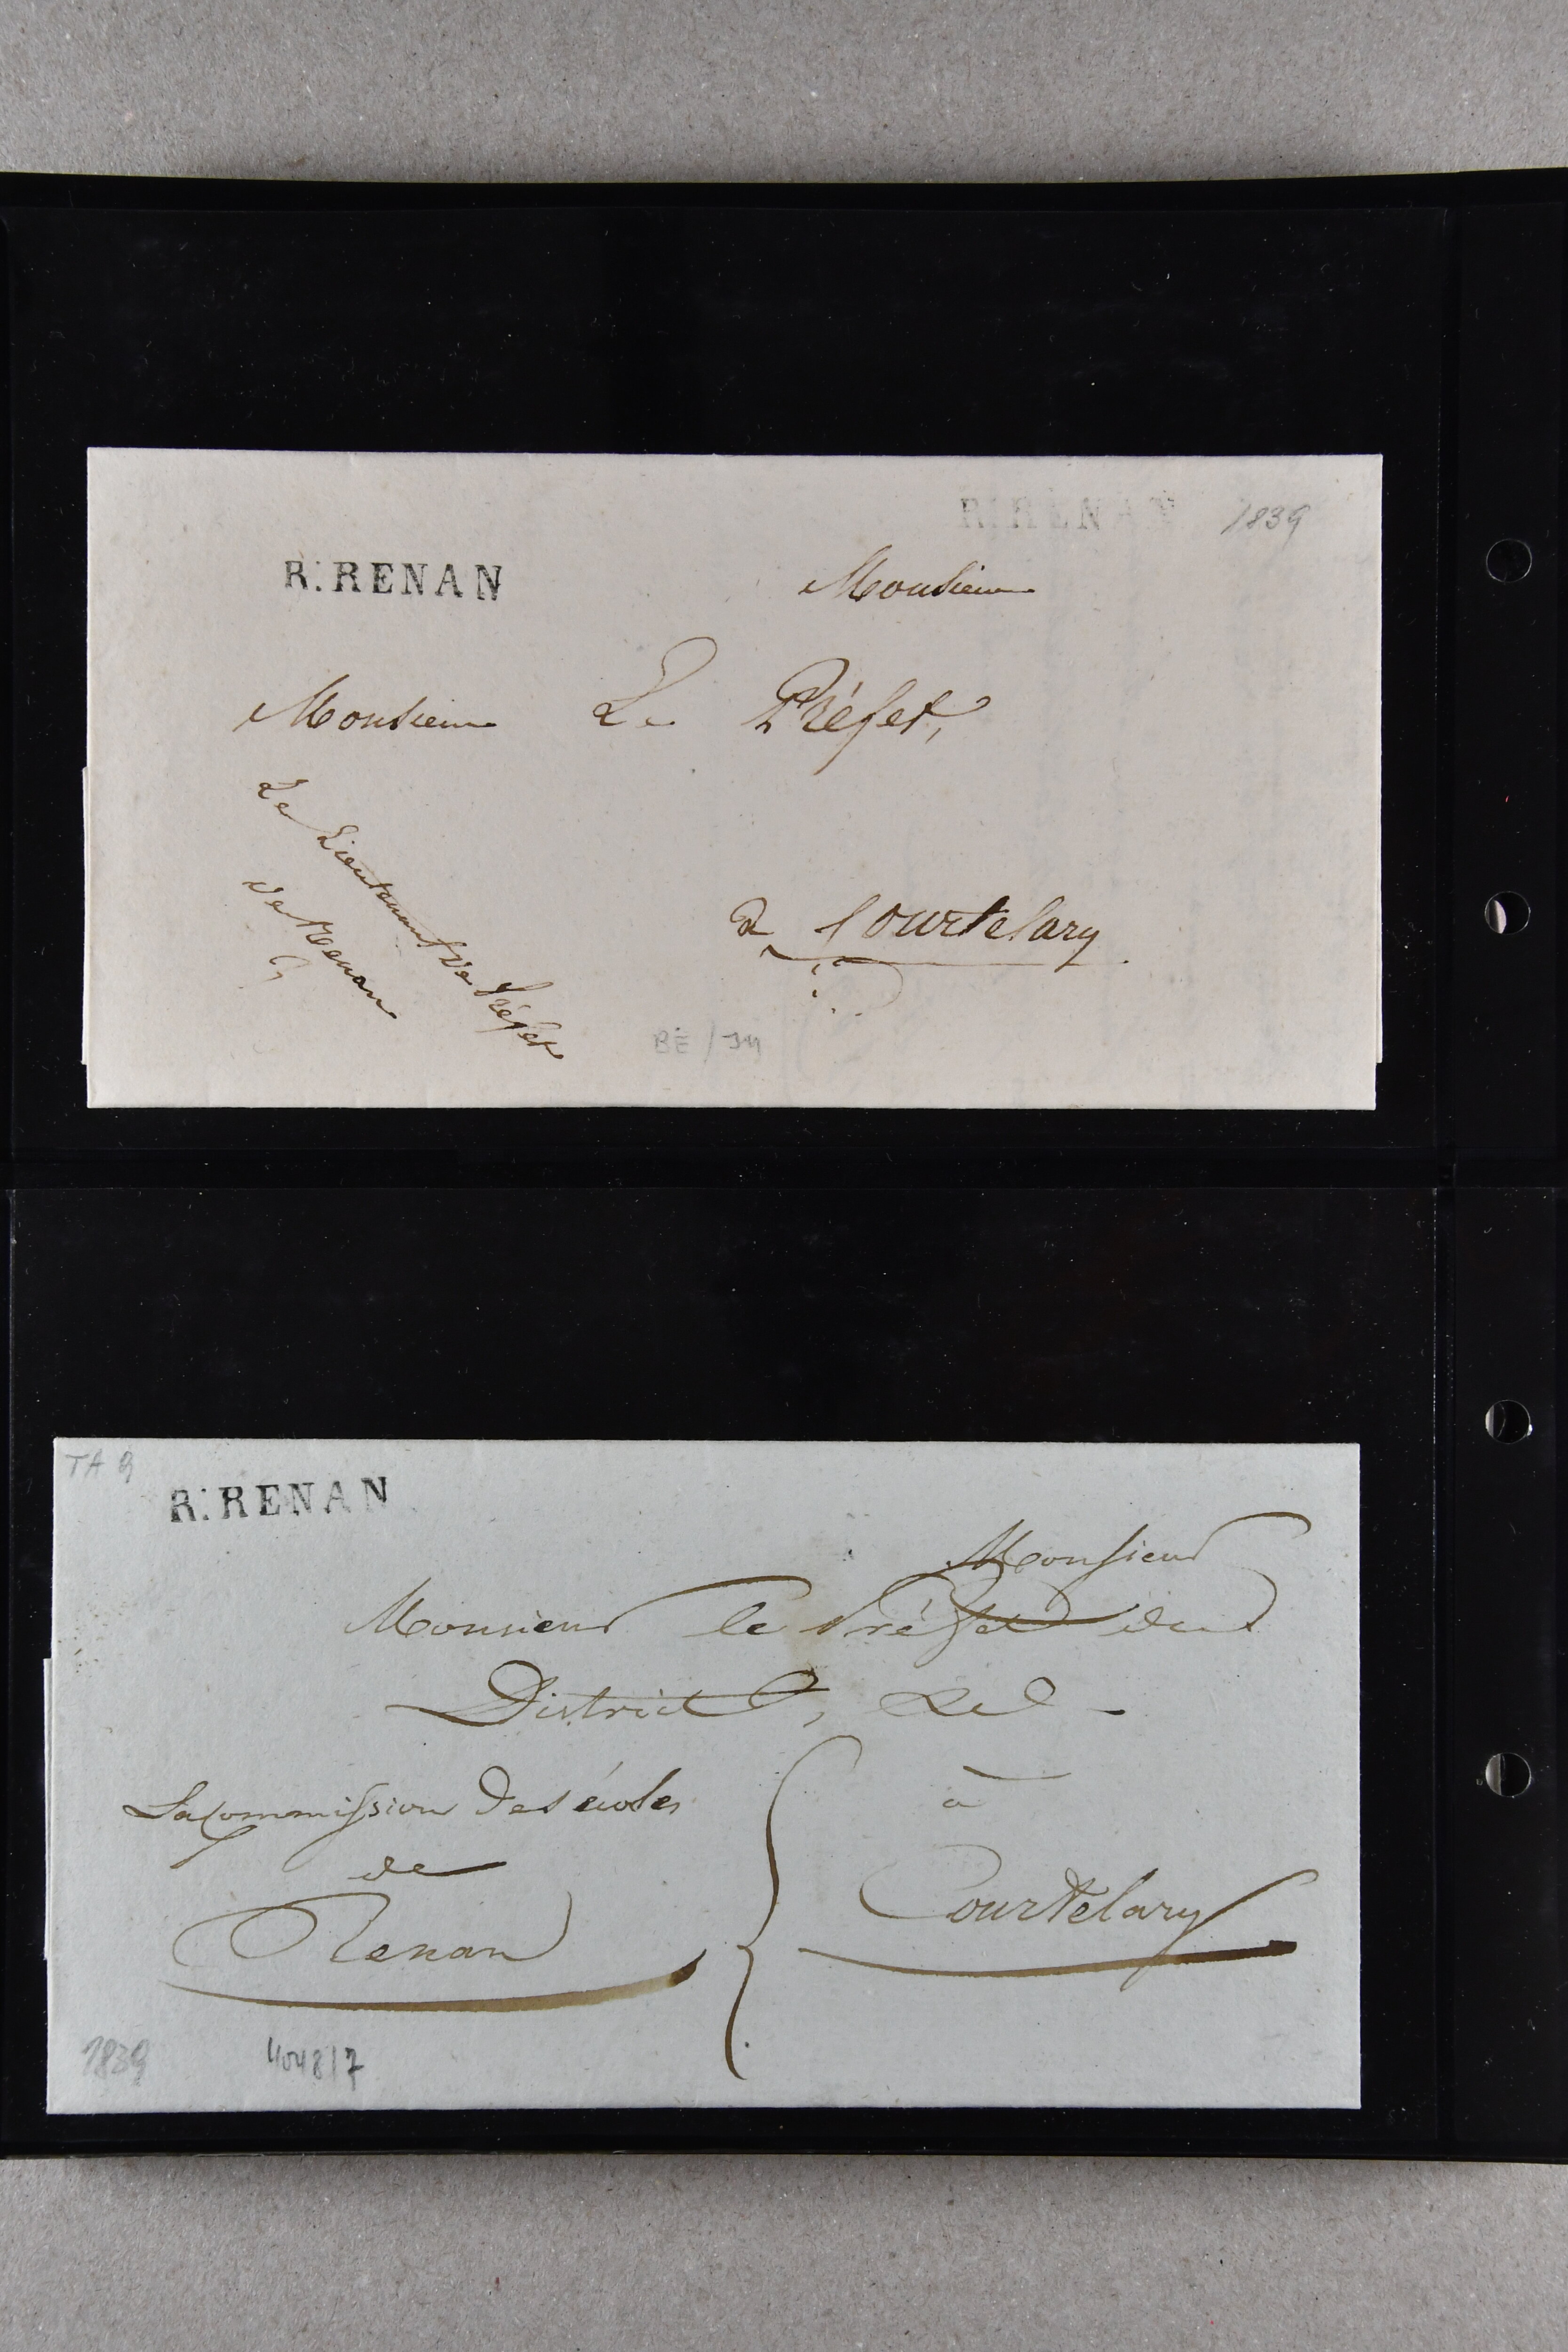 R. RENAN 1839
R. RENAN
Monsieur
Monsieur Le Préfet,
Le Lieutenant de Préfet
de Renan
à Courtelary
BE /
TA 9
R. RENAN
Monsieur
Monsieur le Préfet du
District,
La Commission des écoles
de
Renan
à
Courtelary
1839
4048/7